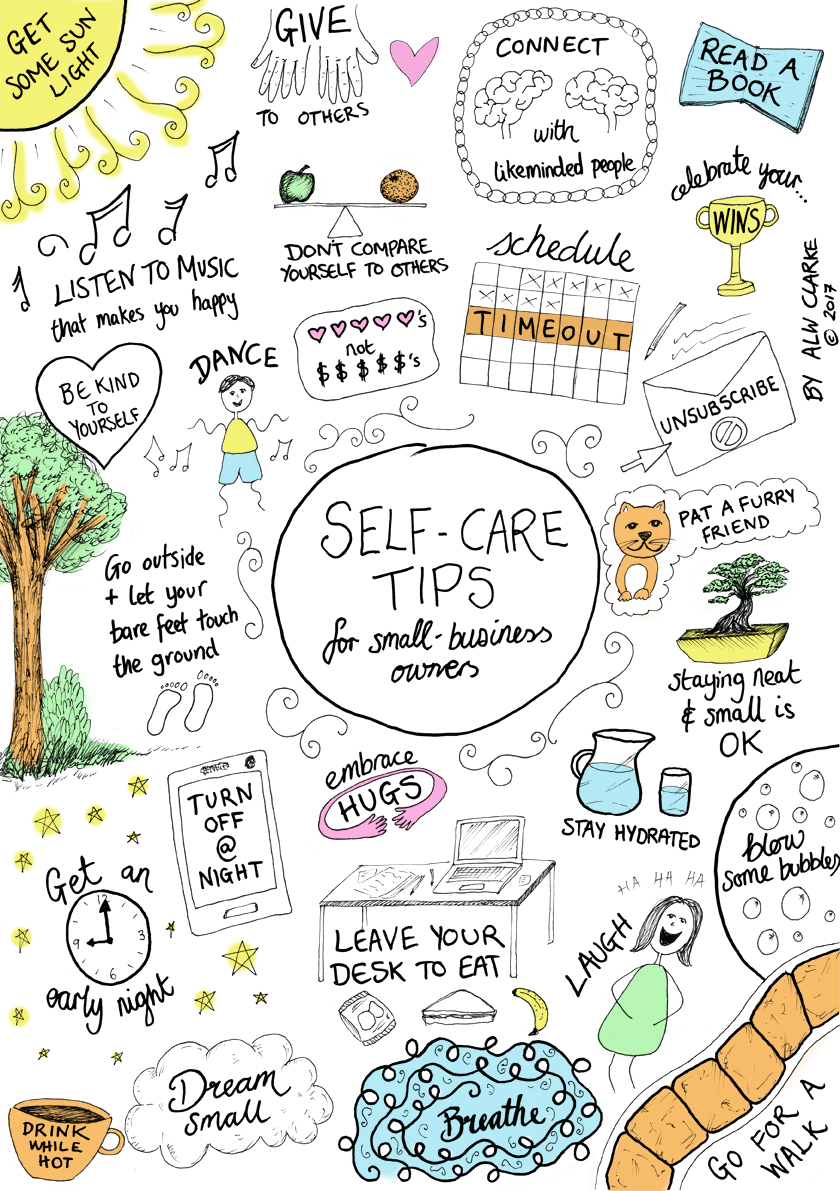 GET
SOME SUN
LIGHT
GIVE
TO OTHERS
CONNECT
with
likeminded people
READ A
BOOK
celebrate your...
WINS
BY ALW CLARKE
© 2017
LISTEN TO MUSIC
that makes you happy
DON'T COMPARE
YOURSELF TO OTHERS
schedule
TIMEOUT
's
not
$ $ $ $ $'s
UNSUBSCRIBE
BE KIND
TO
YOURSELF
DANCE
SELF-CARE
TIPS
for small-business
owners
PAT A FURRY
FRIEND
Go outside
+ let your
bare feet touch
the ground
staying neat
& small is
OK
TURN
OFF
@
NIGHT
embrace
HUGS
STAY HYDRATED
blow
some bubbles
Get an
12
9
3
6
early night
LEAVE YOUR
DESK TO EAT
HA HA HA
LAUGH
Dream
small
Breathe
DRINK
WHILE
HOT
GO FOR A
WALK